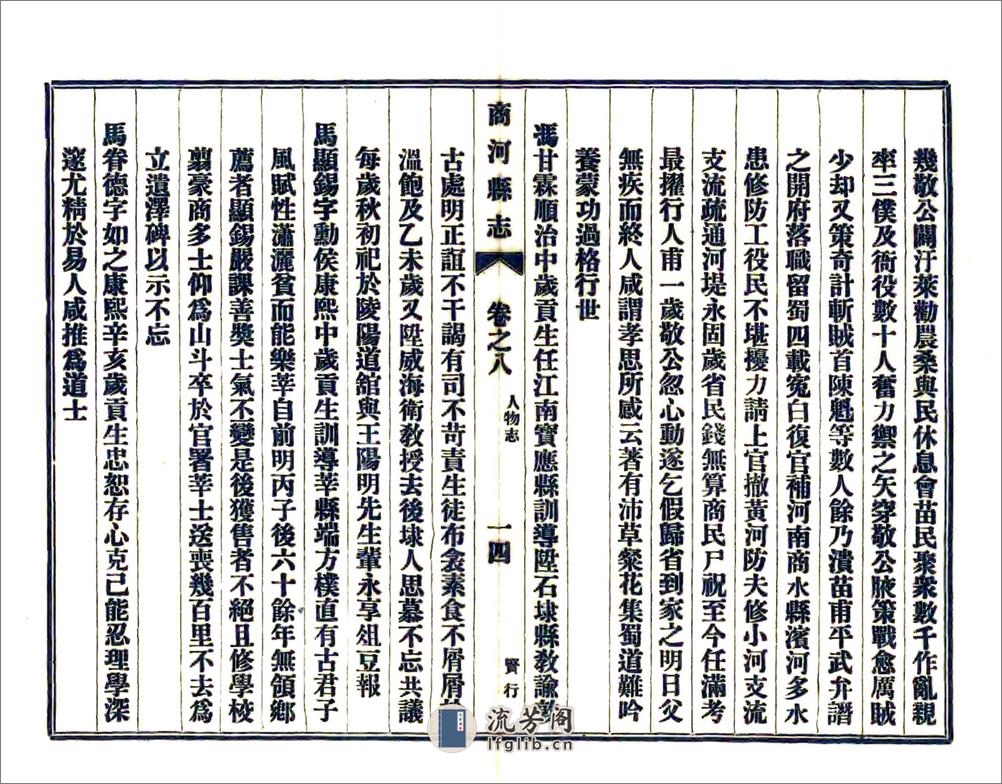 幾敬公闢汙萊勸農桑與民休息會苗民聚衆數千作亂親
率三僕及衙役數十人奮力禦之矢穿敬公腋策戰愈厲賊
少却又策奇計斬賊首陳魁等數人餘乃潰苗甫平武弁譖
之開府落職留蜀四載寃白復官補河南商水縣濱河多水
患修防工役民不堪擾力請上官撤黃河防夫修小河支流
支流疏通河堤永固歲省民錢無算商民尸祝至今任滿考
最擢行人甫一歲敬公忽心動遂乞假歸省到家之明日父
無疾而終人咸謂孝思所感云著有沛草粲花集蜀道難吟
養蒙功過格行世
馮甘霖順治中歲貢生任江南寶應縣訓導陞石埭縣教諭敦
商河縣志 卷之八 人物志 一四 賢行
古處明正誼不干謁有司不苛責生徒布衾素食不屑屑於
溫飽及乙未歲又陞威海衛教授去後埭人思慕不忘共議
每歲秋初祀於陵陽道舘與王陽明先生輩永享俎豆報
馬顯錫字勳侯康熙中歲貢生訓導莘縣端方樸直有古君子
風賦性瀟灑貧而能樂莘自前明丙子後六十餘年無領鄉
薦者顯錫嚴課善獎士氣不變是後獲售者不絕且修學校
翦豪商多士仰爲山斗卒於官署莘士送喪幾百里不去爲
立遺澤碑以示不忘
馬眷德字如之康熙辛亥歲貢生忠恕存心克已能忍理學深
邃尤精於易人咸推爲道士
流芳阁
lfglib.cn